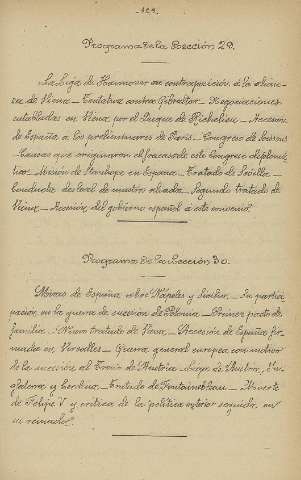 -129-
Programa de la Lección 29.
La Liga de Hannover en contraposición á la alian-
za de Viena – Tentativa contra Gibraltar – Negociaciones
entabladas en Viena por el Duque de Richelieu – Accesión
de España a los preliminares de Paris – Congreso de Soissons
Causas que originaron el fracaso de este Congreso diplomá-
tico – Misión de Stanhope en España – Tratado de Sevilla –
Conducta desleal de nuestros aliados – Segundo tratado de
Viena – Accesión del gobierno español á este convenio.
Programa de la Lección 30.
Miras de España sobre Nápoles y Sicilia – Su partici
pacion en la guerra de sucesion de Polonia – Primer pacto de
familia – Nuevo tratado de Viena – Accesión de España fir-
mada en Versalles – Guerra general europea con motivo
de la sucesión al Trono de Austria – Ligas de Austria, In-
glaterra y Cerdeña – Tratado de Fontainebleau – Muerte
de Felipe V y critica de la politica exterior seguida en
su reinado.